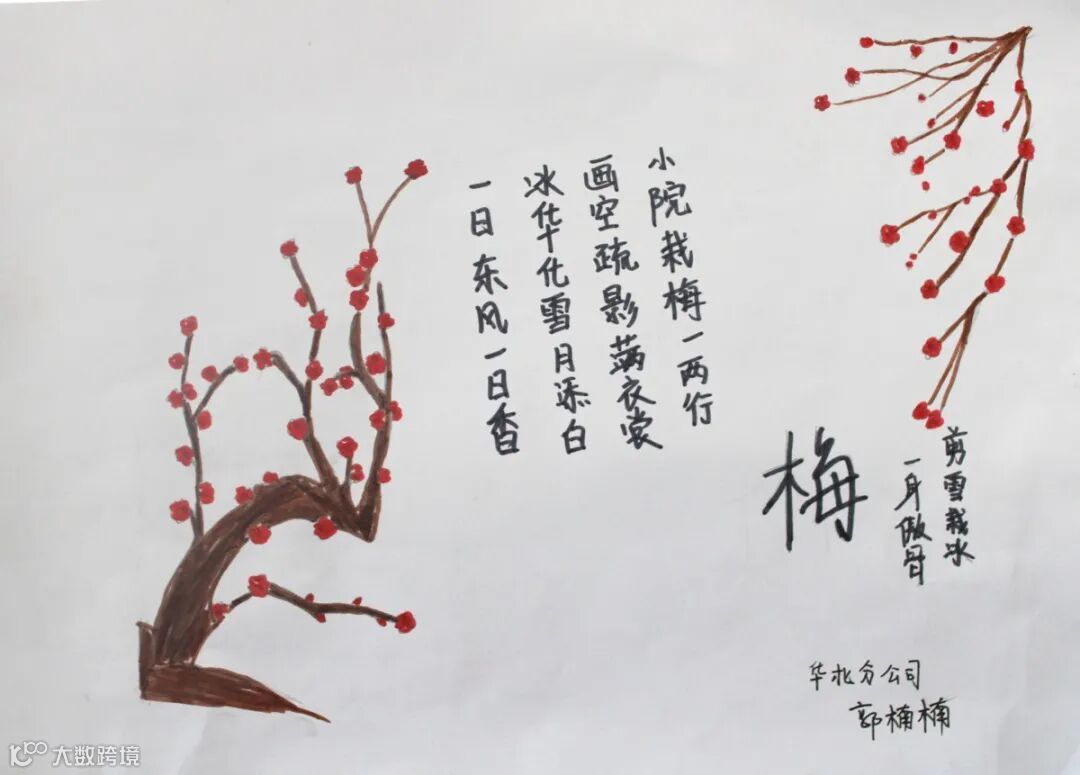 小院栽梅一两行
画空疏影满衣裳
冰华化雪月添白
一日东风一日香
梅
剪雪裁冰
一身傲骨
华北分公司
郭楠楠
大数跨境